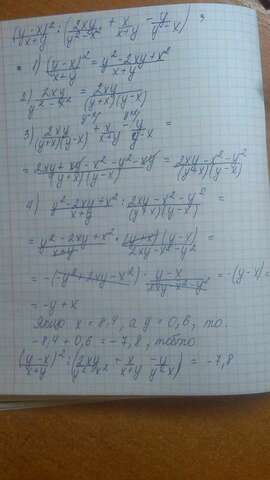 (y-x)²/(x+y) : (2xy/(y²-x²) + x/(x+y) - y/(y-x)) =
1) (y-x)²/(x+y) = (y²-2xy+x²)/(x+y)
2) 2xy/(y²-x²) = 2xy/((y+x)(y-x))
3) 2xy/((y+x)(y-x)) + x/(x+y) - y/(y-x) =
= (2xy+xy-x²-y²-xy)/((y+x)(y-x)) = (2xy-x²-y²)/((y+x)(y-x))
4) (y²-2xy+x²)/(x+y) : (2xy-x²-y²)/((y+x)(y-x)) =
= (y²-2xy+x²)/(x+y) · ((y+x)(y-x))/(2xy-x²-y²) =
= -(-y²+2xy-x²) · (y-x)/(2xy-x²-y²) = -(y-x) =
= -y+x
Якщо x = 8,4, а y = 0,6, то
-8,4 + 0,6 = -7,8, тобто
(y-x)²/(x+y) : (2xy/(y²-x²) + x/(x+y) - y/(y-x)) = -7,8